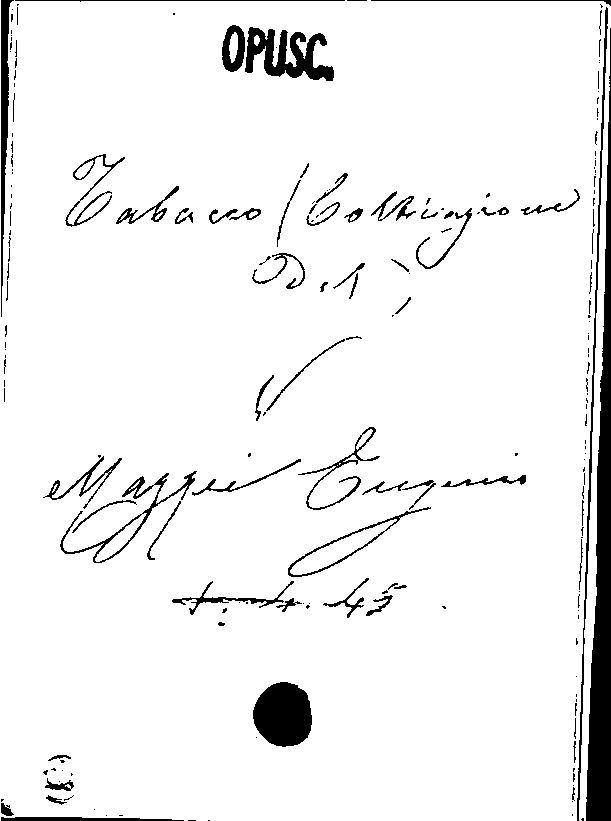 OPUSC.
Tabacco (Coltivazione
Del)
V
Maggi Eugenio
1. 4. 45